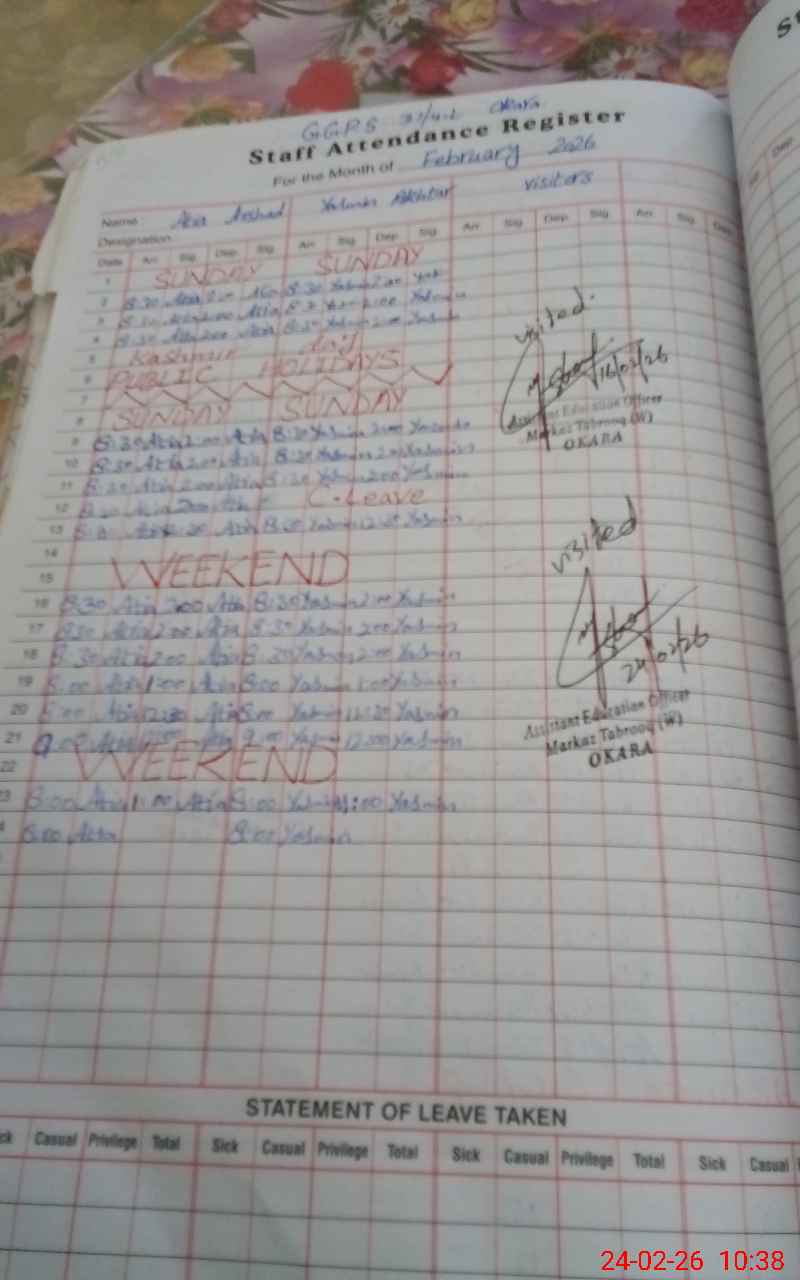 G.G.P.S Okara
Staff Attendance Register
For the Month of February 2026
Name Atia Arshad Yasmin Akhtar visitors
Designation
Date Arr Sig Dep Sig Arr Sig Dep Sig Arr Sig Dep Sig Arr Sig Dep
1 SUNDAY SUNDAY
2 8:30 Atia 2:00 Atia 8:30 Yasmin 2:00
3 8:30 Atia 2:00 Atia Yasmin 2:00 Yasmin
4 8:30 Atia 2:00 Atia 8:30 Yasmin 2:00 Yasmin
5 Kashmir day
6 PUBLIC HOLIDAYS
7
8 SUNDAY SUNDAY
9 8:30 Atia 2:00 Atia 8:30 Yasmin 2:00 Yasmin
10 8:30 Atia 2:00 Atia 8:30 Yasmin 2:00 Yasmin
11 8:30 Atia 2:00 Atia 8:30 Yasmin 2:00 Yasmin
12 Atia 2:00 C-Leave
13 Atia Atia Yasmin Yasmin
14
15 WEEKEND
16 8:30 Atia 2:00 Atia 8:30 Yasmin 2:00 Yasmin
17 8:30 Atia 2:00 Atia 8:30 Yasmin 2:00 Yasmin
18 8:30 Atia 2:00 Atia 8:30 Yasmin 2:00 Yasmin
19 8:00 Atia 1:00 Atia 8:00 Yasmin 1:00 Yasmin
20 8:00 Atia Atia 8:00 Yasmin Yasmin
21 9:00 Atia 12:00 Atia 9:00 Yasmin 12:00 Yasmin
22 WEEKEND
8:00 Atia 1:00 Atia 8:00 Yasmin 1:00 Yasmin
8:00 Atia 8:00 Yasmin
visited.
16/02/26
Assistant Education Officer
Markaz Tabrooq (W)
OKARA
visited
24/02/26
Assistant Education Officer
Markaz Tabrooq (W)
OKARA
STATEMENT OF LEAVE TAKEN
Casual Privilege Total Sick Casual Privilege Total Sick Casual Privilege Total Sick Casual
24-02-26 10:38